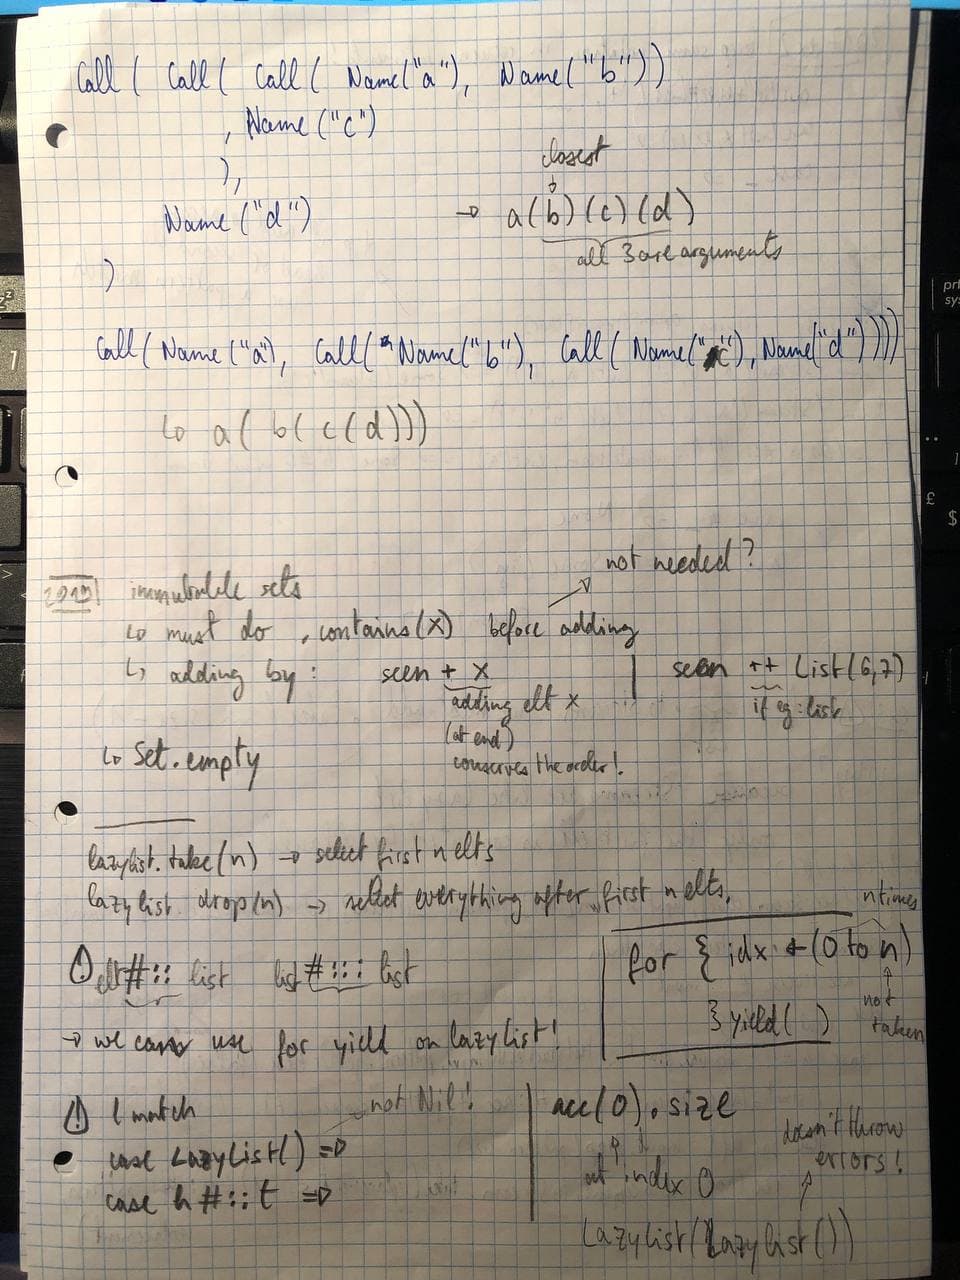 Call ( Call ( Call ( Name("a"), Name("b"))
, Name("c")
),
Name("d")
)
closest
→ a(b)(c)(d)
all 3 are arguments
Call(Name("a"), Call(Name("b"), Call(Name("c"),Name("d"))))
↳ a( b( c(d)))
not needed?
immutable sets
↳ must do .contains(x) before adding
↳ adding by: seen + x
adding elt x
(at end)
conserves the order!
seen ++ List(6,7)
if eg: list
↳ Set.empty
lazylist.take(n) → select first n elts
lazylist drop(n) → select everything after first n elts.
elt #:: list list #::: list
→ we can use for yield on lazylist!
n times
for { idx ← (0 to n)
} yield( )
not
taken
! l match
not Nil!
case LazyList() =>
case h #:: t =>
acc(0).size
at index 0
doesn't throw
errors!
LazyList(LazyList())